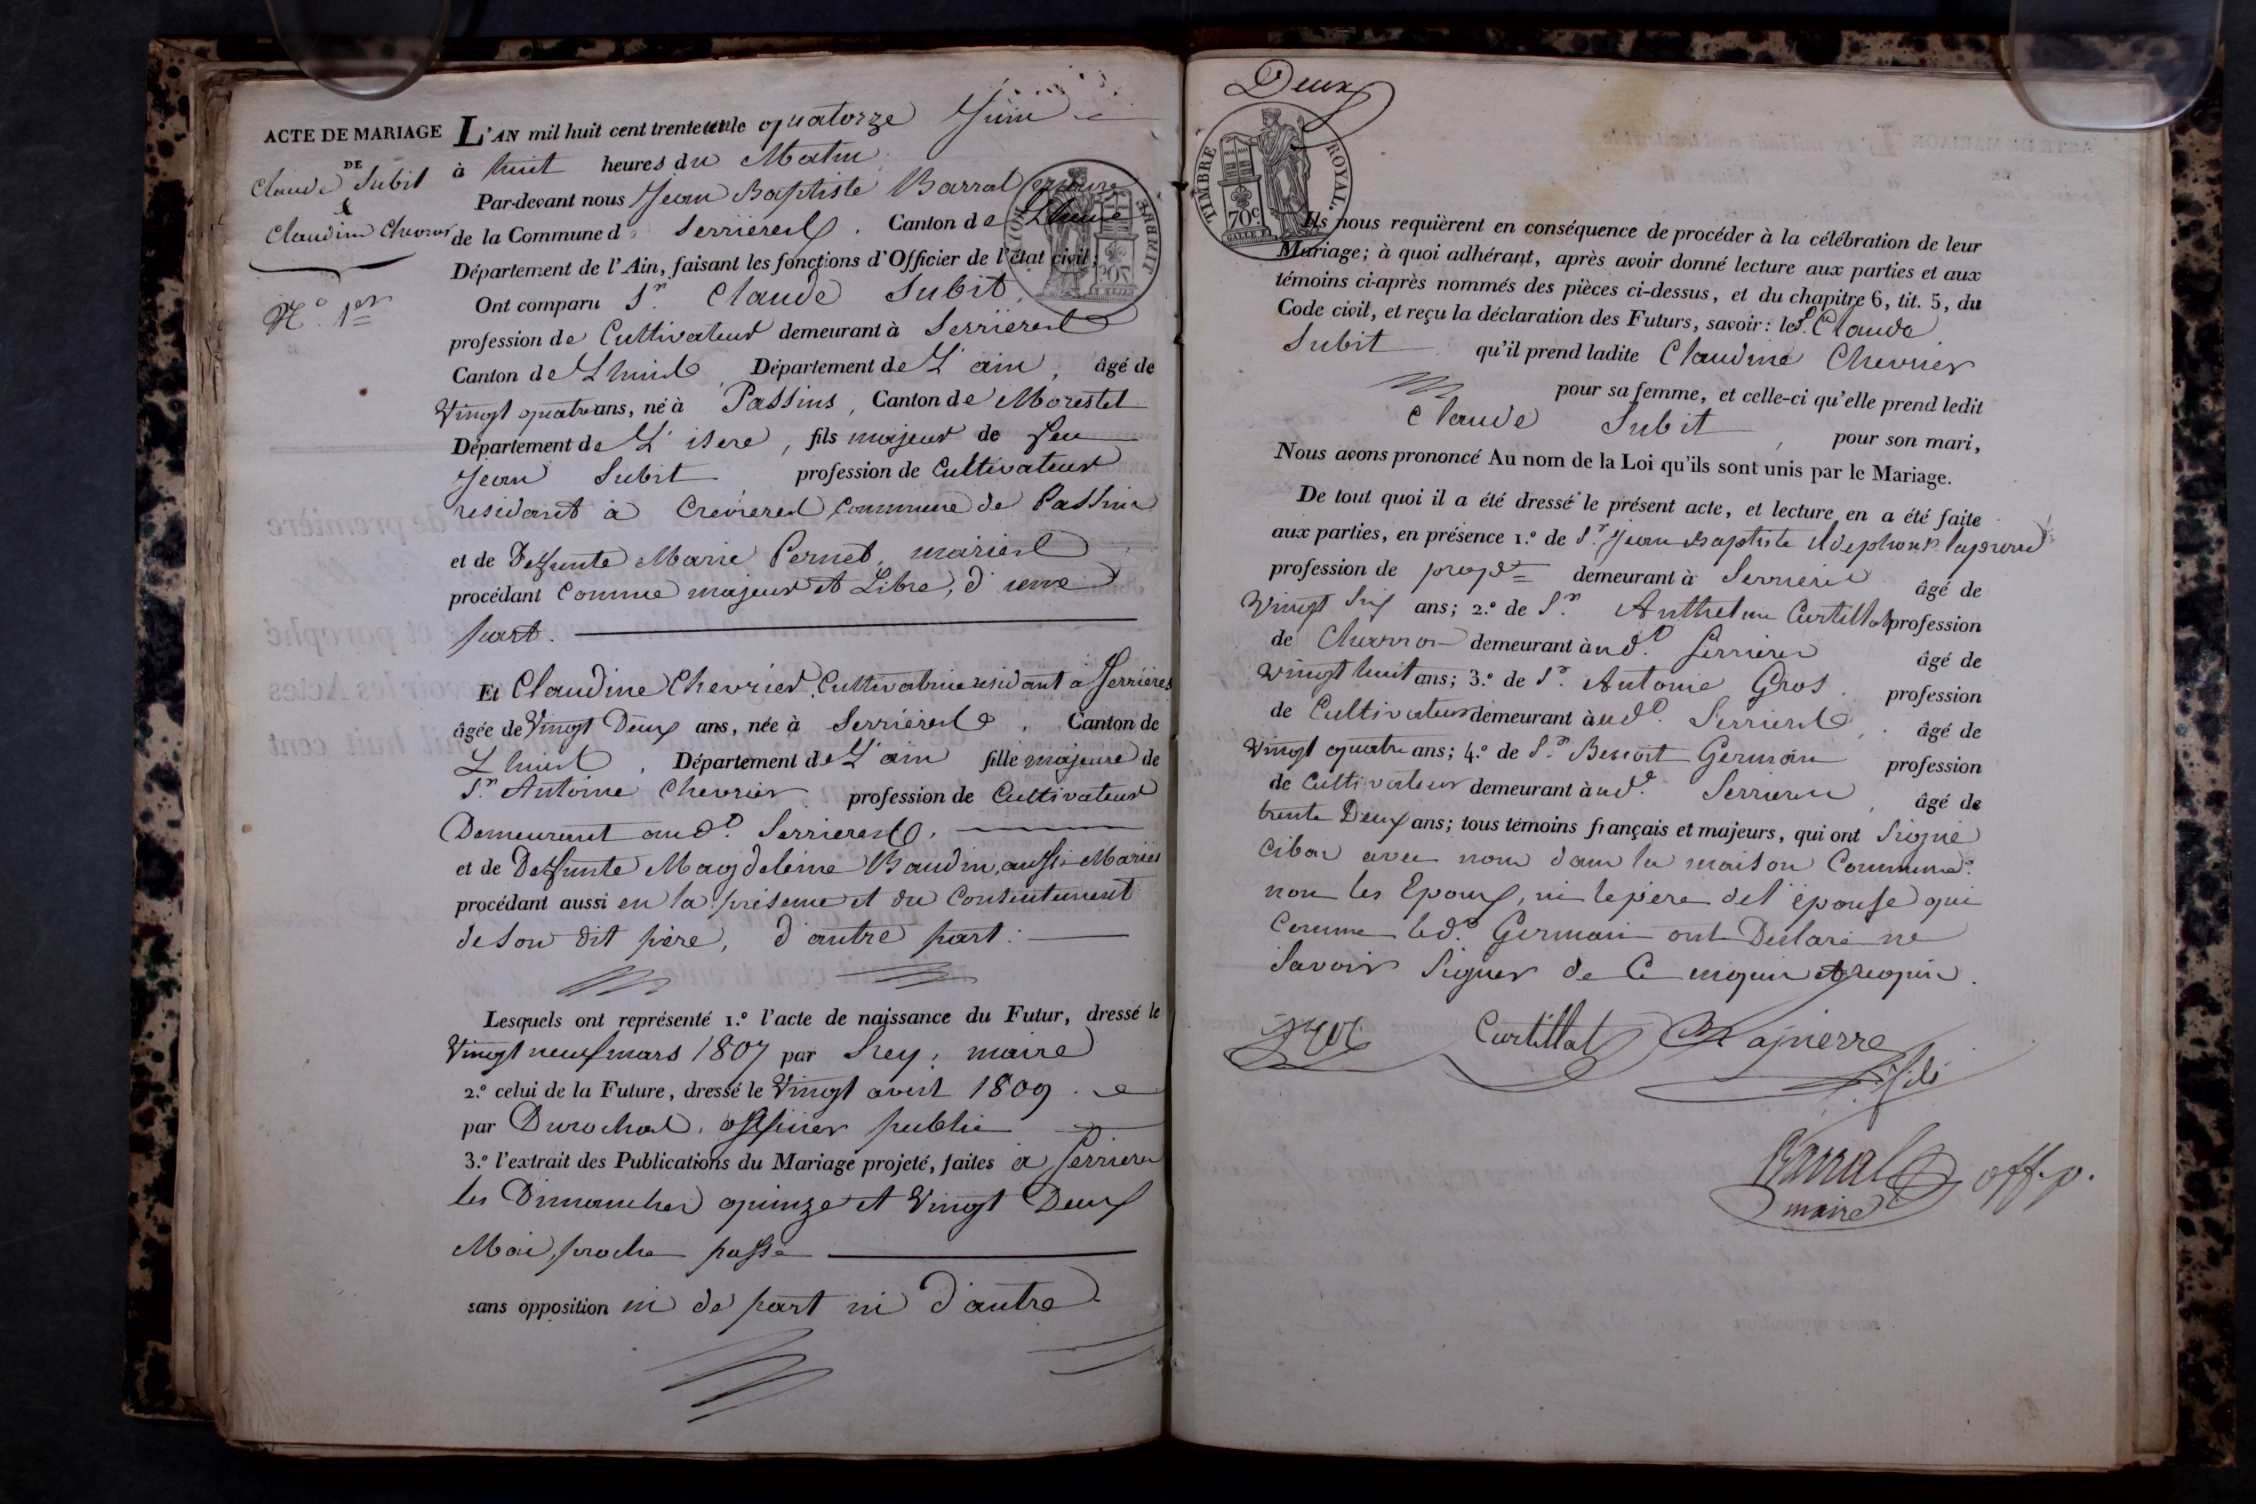 ACTE DE MARIAGE
DE
Claude Subit
&
Claudine Chevrier
N.º 1er
L'AN mil huit cent trente un le quatorze Juin
à huit heures du Matin
Par-devant nous Jean Baptiste Barral maire
de la Commune de Serrières, Canton de Lhuis
Département de l'Ain, faisant les fonctions d'Officier de l'état civil;
Ont comparu Sr. Claude Subit,
profession de Cultivateur demeurant à Serrières
Canton de Lhuis, Département de L'ain, âgé de
Vingt quatre ans, né à Passins, Canton de Morestel
Département de L'isere, fils majeur de feu
Jean Subit, profession de Cultivateur
residant à Crevieres commune de Passins
et de Deffunte Marie Pernet, mariés
procédant Comme majeur et Libre, d'une
part.
Et Claudine Chevrier, Cultivatrice residant à Serrières
âgée de Vingt Deux ans, née à Serrières, Canton de
Lhuis, Département de L'ain fille majeure de
Sr. Antoine Chevrier profession de Cultivateur
Demeurant aud.t Serrieres,
et de Deffunte Magdeleine Baudin, aussi Mariés
procédant aussi en la présence et du Consentement
de son dit père, d'autre part.
Lesquels ont représenté 1.º l'acte de naissance du Futur, dressé le
Vingt neuf mars 1807 par Frey, maire
2.º celui de la Future, dressé le Vingt avril 1809
par Durochat, officier public
3.º l'extrait des Publications du Mariage projeté, faites à Serrieres
les Dimanches quinze et Vingt Deux
Mai, proche passé
sans opposition ni de part ni d'autre
Deux
TIMBRE ROYAL.
70c
Ils nous requièrent en conséquence de procéder à la célébration de leur
Mariage; à quoi adhérant, après avoir donné lecture aux parties et aux
témoins ci-après nommés des pièces ci-dessus, et du chapitre 6, tit. 5, du
Code civil, et reçu la déclaration des Futurs, savoir: led. Claude
Subit qu'il prend ladite Claudine Chevrier
pour sa femme, et celle-ci qu'elle prend ledit
Claude Subit, pour son mari,
Nous avons prononcé Au nom de la Loi qu'ils sont unis par le Mariage.
De tout quoi il a été dressé le présent acte, et lecture en a été faite
aux parties, en présence 1.º de Sr. Jean Baptiste Ildephonse Lapierre
profession de propre demeurant à Serrieres âgé de
Vingt Six ans; 2.º de Sr. Anthelme Curtillat profession
de Charron demeurant aud.t Serrieres âgé de
Vingt huit ans; 3.º de Sr. Antoine Gros. profession
de Cultivateur demeurant aud.t Serrieres, âgé de
Vingt quatre ans; 4.º de Sr. Benoit Germain profession
de Cultivateur demeurant aud.t Serrieres, âgé de
trente Deux ans; tous témoins français et majeurs, qui ont Signé
cibas avec nous dans la maison Commune
non les Epoux, ni le père de l'épouse qui
Comme led.t Germain ont Declaré ne
Savoir Signer de Ce enquis et requis.
Gros Curtillat Lapierre
fils
Barral off. p.
maire